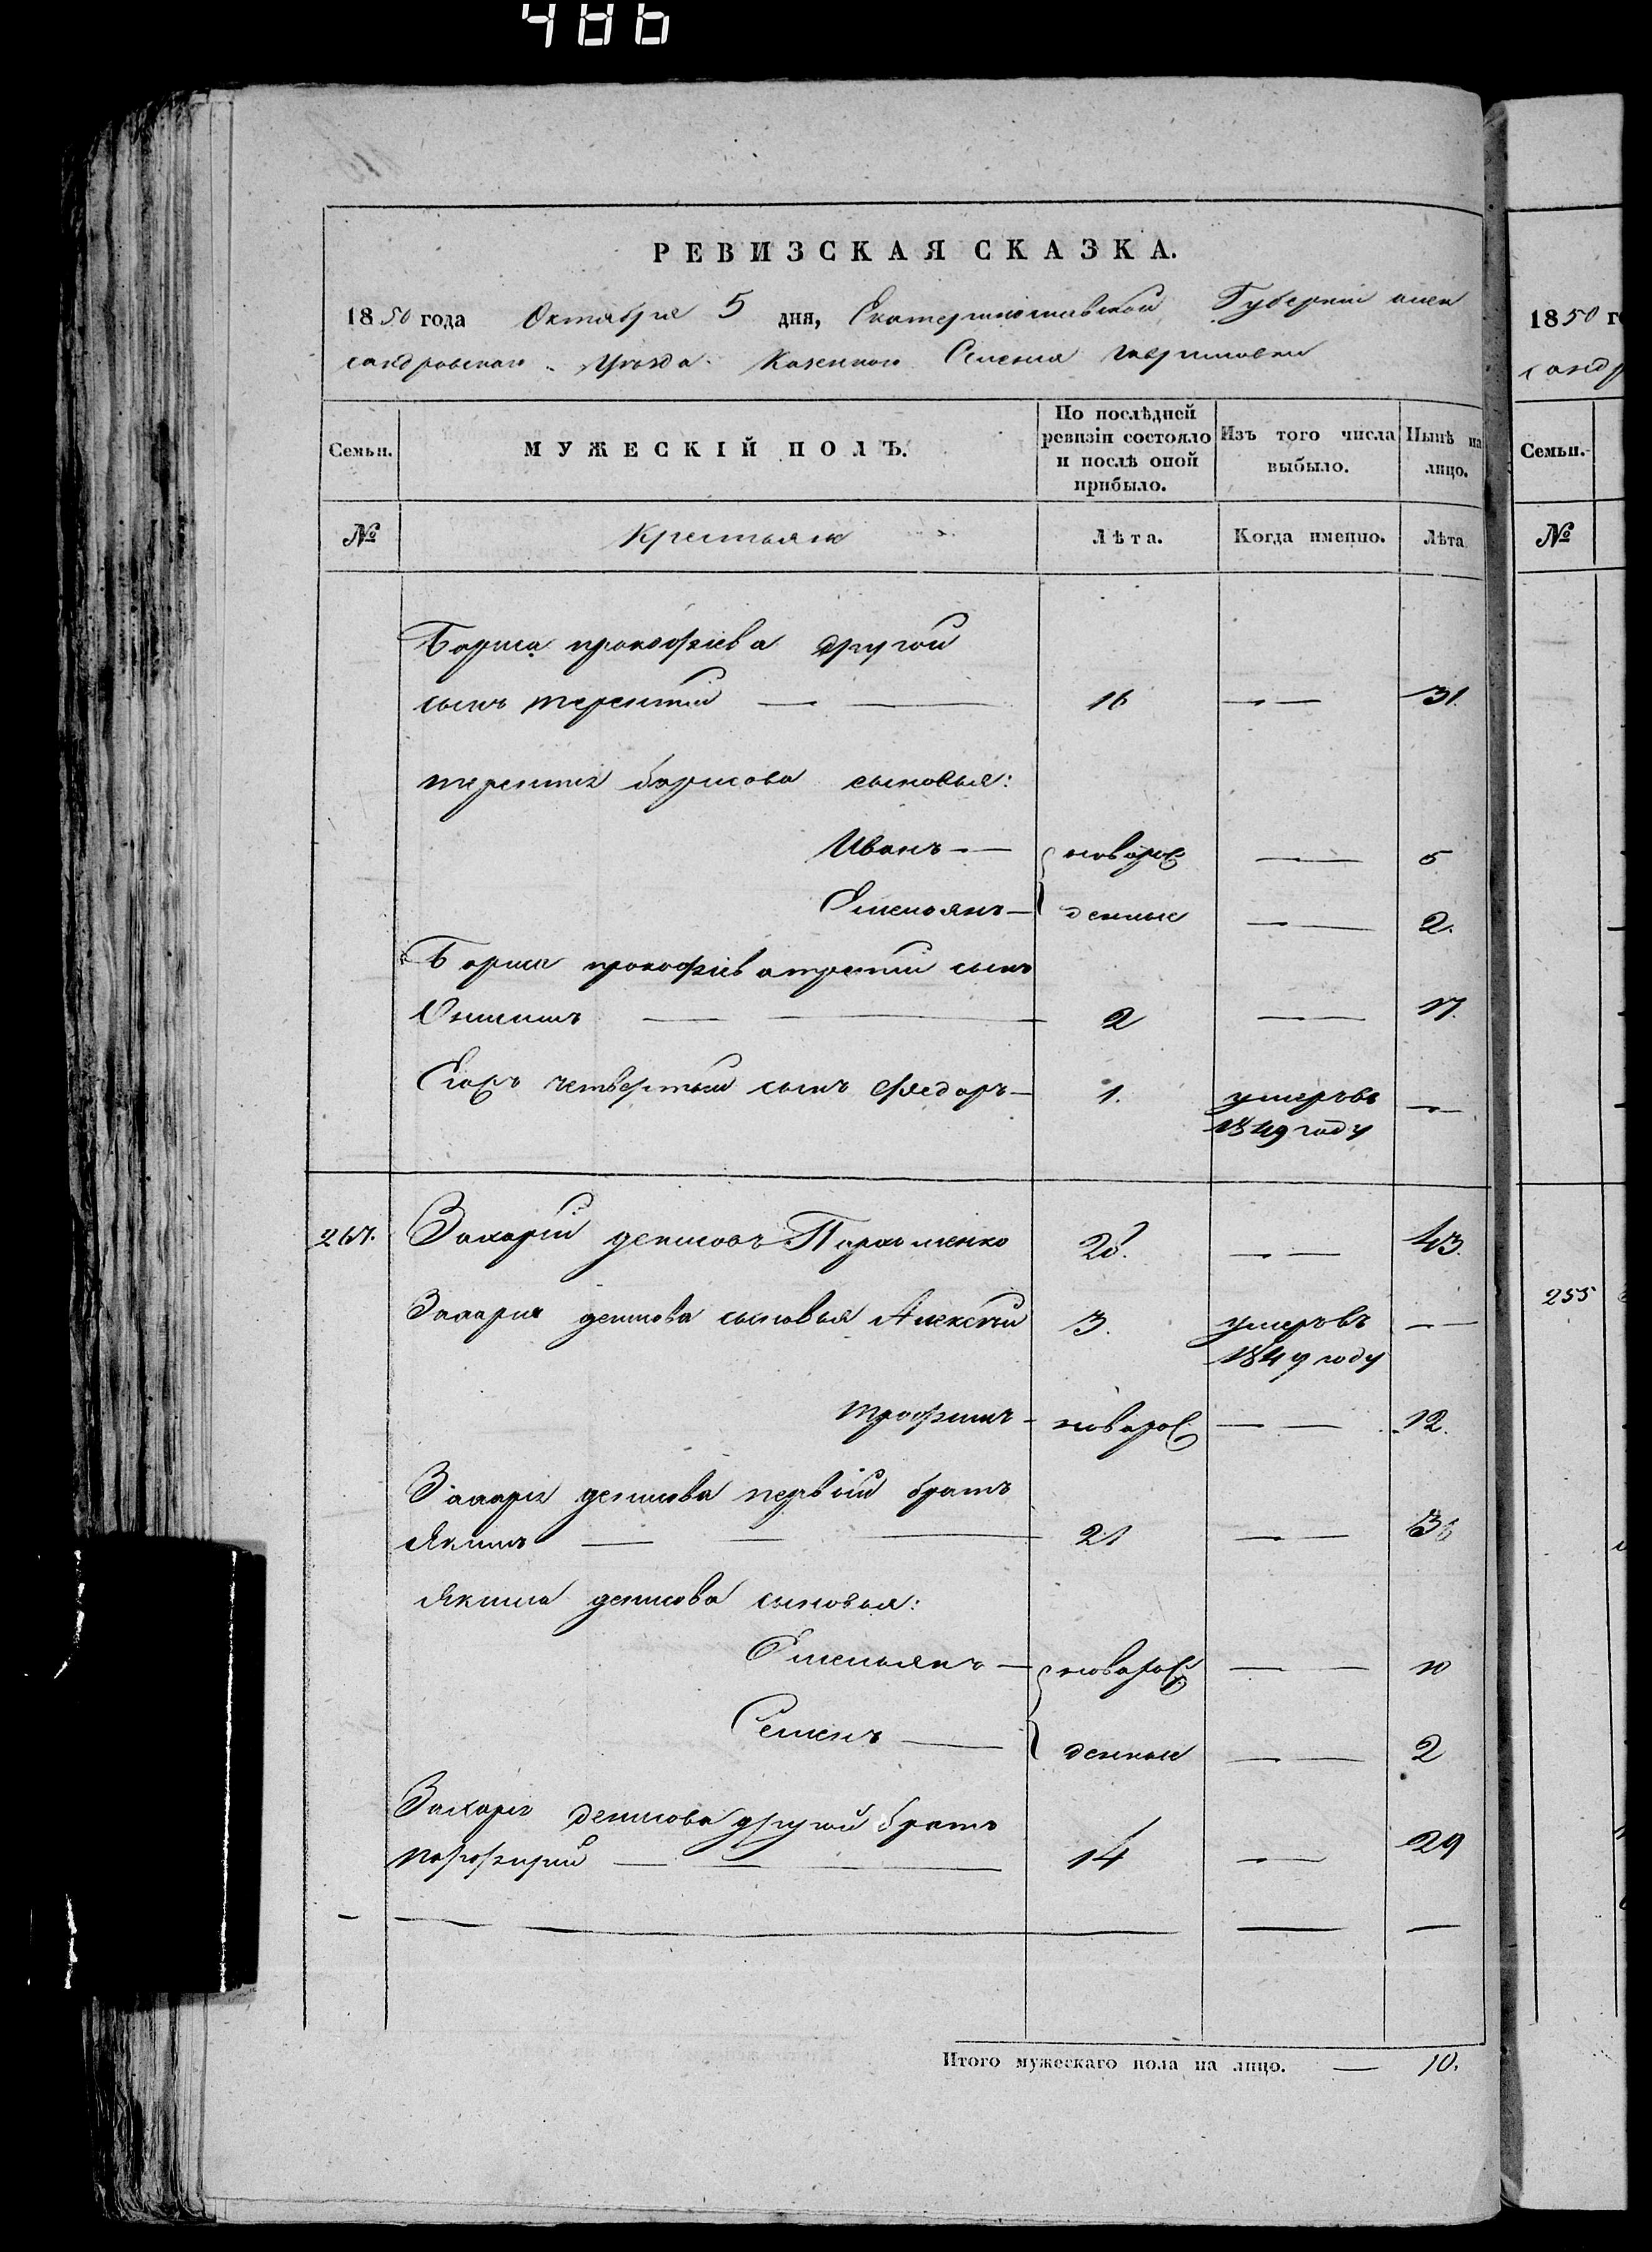 486
РЕВИЗСКАЯ СКАЗКА.
1850 года Октября 5 дня, Екатеринославской Губерніи алек
сандровскаго Уезда Казенного Селенія Гавриловки
Семьи. МУЖЕСКІЙ ПОЛЪ. По послѣдней ревизіи состояло и послѣ оной прибыло. Изъ того числа выбыло. Нынѣ на лицо.
№ Крестьяне Лѣта. Когда именно. Лѣта
Бориса прокофіева другой
сынъ терентій — — 16 — — 31.
терентія борисова сыновья:
Иванъ — — новорож — 5
Емельянъ — денные — 2.
Бориса прокофіева третій сынъ
Онисимъ — — 2 — 17.
Егожъ четвертый сынъ Федоръ — 1. умеръ въ —
1849 году
267. Захарій денисовъ Пархоменко 28. — — 43.
Захарія денисова сыновья Алексѣй 3. умеръ въ — —
1849 году
трофимъ — новорож — — 12.
Захарія денисова первый братъ
Якимъ — — — 21 — — 36
Якима денисова сыновья:
Емельянъ — новорож — — 10
Семенъ — денные — — 2
Захарія денисова другой братъ
порфирий — — — 14 — 29
Итого мужескаго пола на лицо. — 10.
1850 г
сандр
Семьи.
№
255